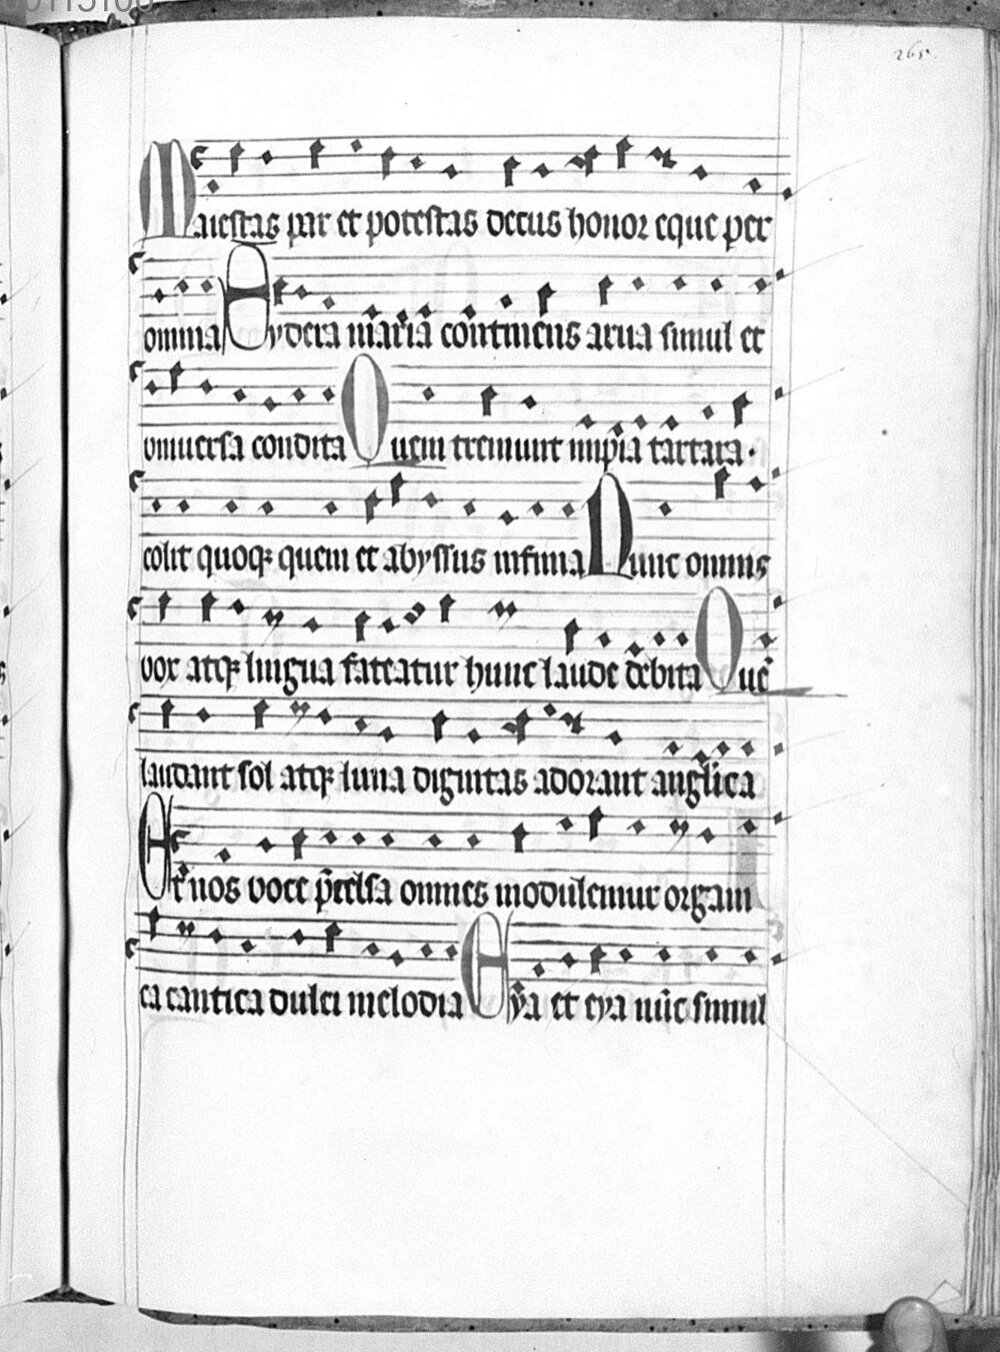 265
Maiestas par et potestas decus honor eque per
omnia Sydera maria continens arua simul et
vniuersa condita Quem tremunt impia tartara·
colit quoqꝫ quem et abyssus infima Nunc omnis
vox atqꝫ lingua fateatur hunc laude debita Quē
laudant sol atqꝫ luna dignitas adorant anglica
Et nos voce p̄celsa omnes modulemur organi
ca cantica dulci melodia Eya et eya nūc simul